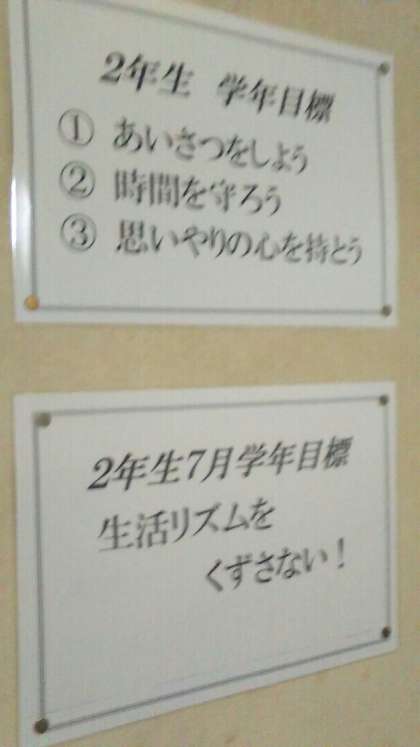 2年生 学年目標
① あいさつをしよう
② 時間を守ろう
③ 思いやりの心を持とう
2年生7月学年目標
生活リズムを
くずさない！